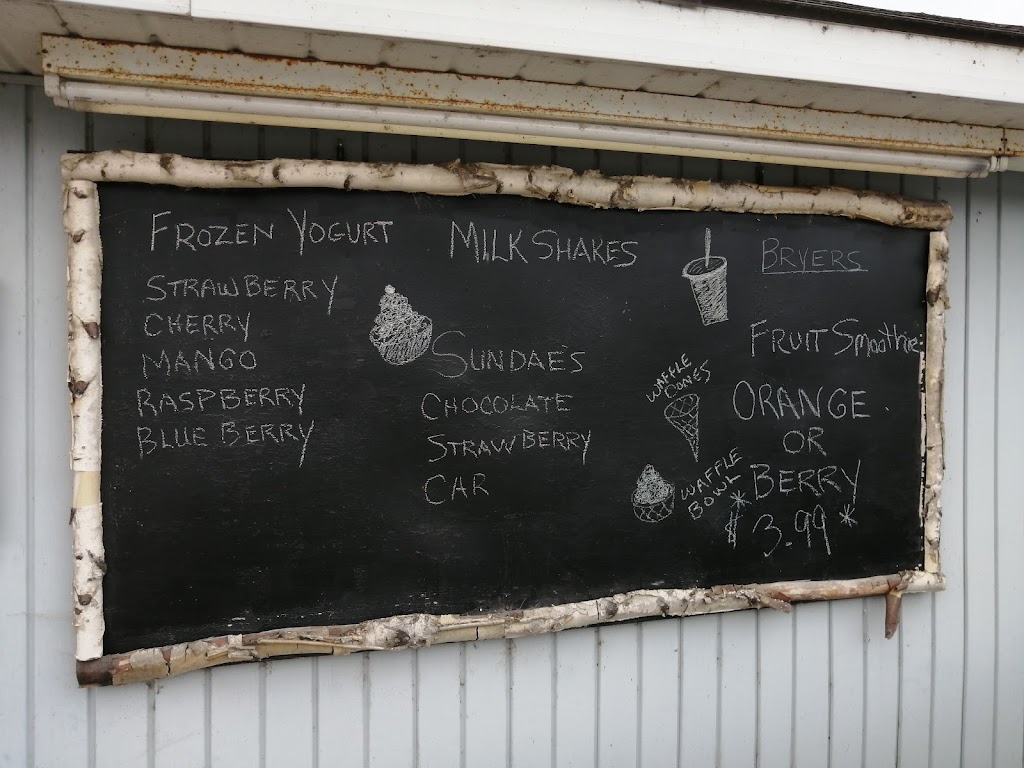 FROZEN YOGURT
STRAWBERRY
CHERRY
MANGO
RASPBERRY
BLUE BERRY
MILKSHAKES
SUNDAES
CHOCOLATE
STRAWBERRY
CAR
WAFFLE
CONES
WAFFLE
BOWL
BRYERS
FRUIT Smoothie
ORANGE
OR
BERRY
*$3.99*